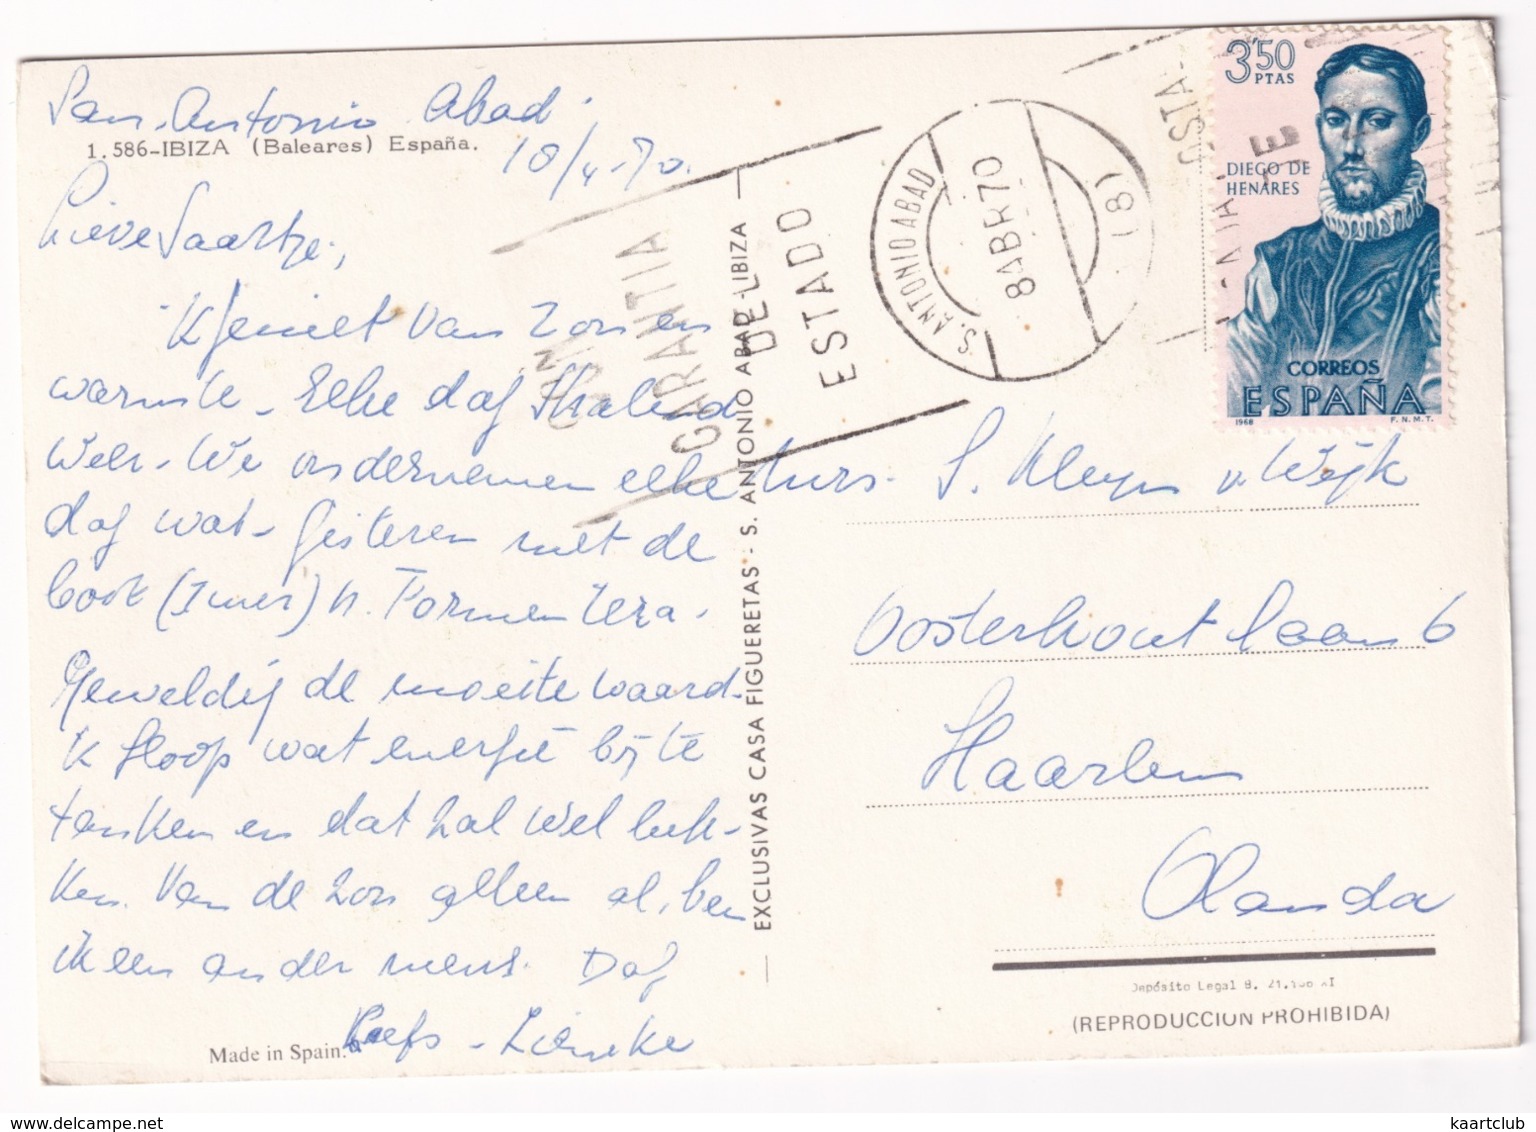 San. Antonio Abad.
1.586-IBIZA (Baleares) España.
10/4-70.
Lieve Saartje,
'k geniet van zon en
warmte - Elke dag stralend
weer. We ondernemen elke
dag wat - gisteren met de
boot (1 uur) n. Formentera.
Geweldig de moeite waard.
ik hoop wat energie bij te
tanken en dat zal wel luk-
ken. Van de zon alleen al, ben
ik een ander mens. Dag
Liefs - Lineke
Made in Spain.
EXCLUSIVAS CASA FIGUERETAS - S. ANTONIO ABAD - IBIZA
CON
GARANTIA
DEL
ESTADO
S. ANTONIO ABAD
8 ABR 70
(8)
3'50
PTAS
DIEGO DE
HENARES
CORREOS
ESPAÑA
1968 F.N.M.T.
S. Kleyn v. Wijk
Oosterhoutlaan 6
Haarlem
Olanda
Depósito Legal B.
(REPRODUCCION PROHIBIDA)
www.delcampe.net
kaartclub